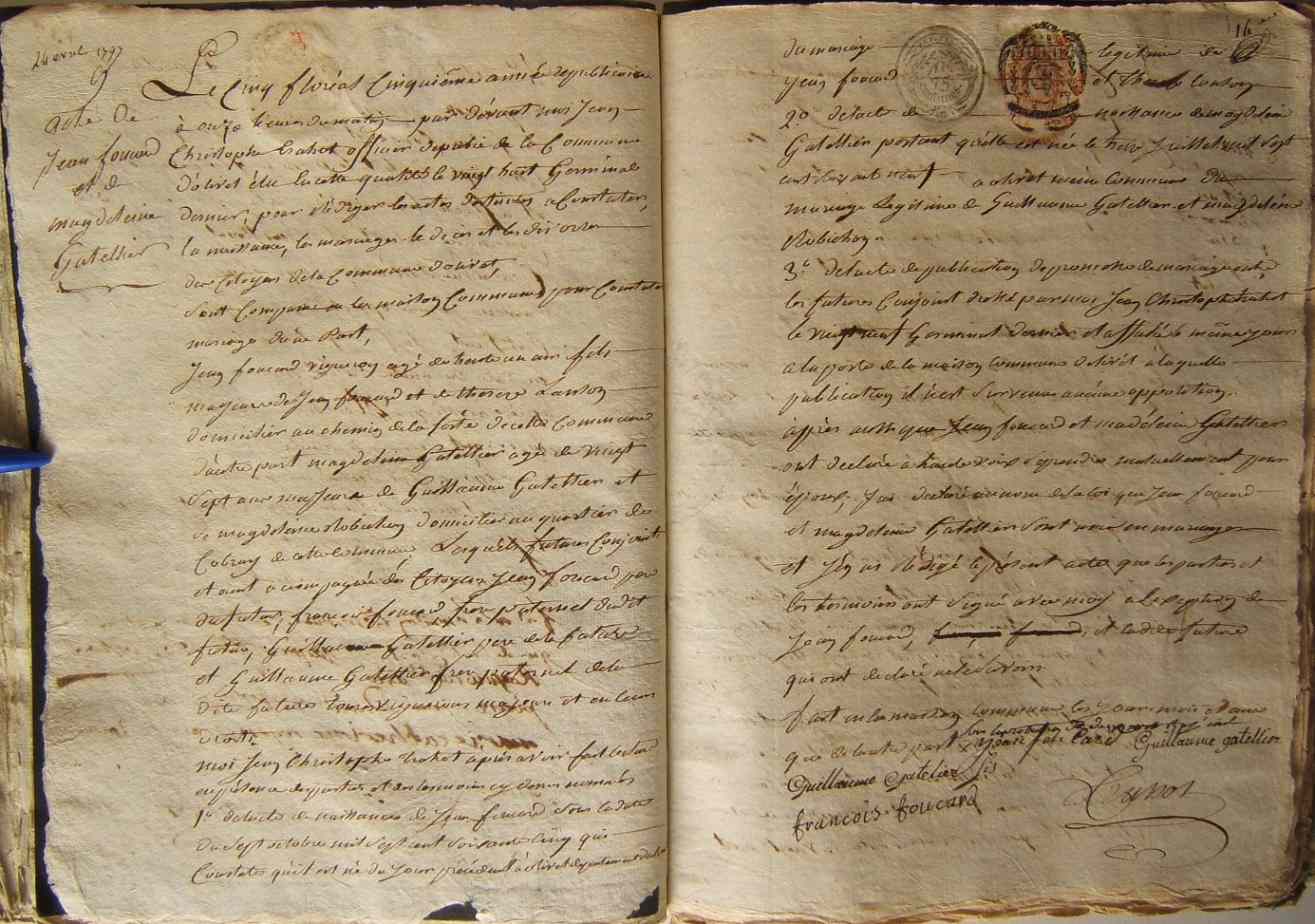 24 avril 1797
acte de
Jean foucard
et de
magdeleine
Gatellier
Le Cinq floréal Cinquième année republicaine
à onze heures du matin, par devant nous Jean
Christophe officier public de la Commune
d'olivet élu le vingt huit Germinal
dernier, pour rédiger les actes destinés a Constater,
la naissance, les mariages le décès et les divorces
des Citoyens de la Commune d'olivet,
Sont Comparu en la maison Commune pour Contracter
mariage d'une Part,
Jean foucard vigneron agé de trente un ans fils
majeure de Jean foucard et de therese Lanson
domicilier au chemin de la de cette Commune
d'autre part magdeleine Gatellier agé de vingt
Sept ans majeure de Guillaume Gatellier et
de magdeleine Robichon domicilier au quartier des
de cette Commune Lesquels futures Conjoint
etant accompagnée des Citoyens Jean foucard pere
du futur, francois foucard frere paternel dudit
futur, Guillaume Gatellier pere de la future
et Guillaume Gatellier frere paternel de la
dite future tous vignerons majeure et
moi Jean Christophe après avoir fait lecture
en présence des parties et des temoins cy denommés
1° de l'acte de naissance de Jean foucard sous la date
du Sept octobre mil Sept cent Soixante Cinq qui
Constate qu'il est né du Jour à olivet
16
du mariage legitime de
Jean foucard et therese Lanson
2° de l'acte de naissance de magdeleine
Gatellier portant qu'elle est née le Juillet mil Sept
cent Soixante neuf a olivet même Commune du
mariage Legitime de Guillaume Gatellier et magdeleine
Robichon.
3° de l'acte de publication de promesse de mariage entre
les futures Conjoint dressé par moi Jean Christophe
le vingt neuf Germinal dernier et affiché le même jour
a la porte de la maison commune d'olivet à laquelle
publication il n'est Survenue aucune opposition.
après aussi que Jean foucard et madeleine Gatellier
ont declaré à haute voix Se prendre mutuellement pour
époux, J'ai declaré au nom de la loi que Jean foucard
et magdeleine Gatellier Sont unis en mariage
et J'ay redigé le present acte que les parties et
les temoins ont signé avec moy a l'exception de
Jean foucard, francois foucard, et la dite future
qui ont declaré ne le Savoir
fait en la maison commune les Jour mois et an
que de l'autre part
Guillaume gatellier
Guillaume Gatelier fils
francois foucard